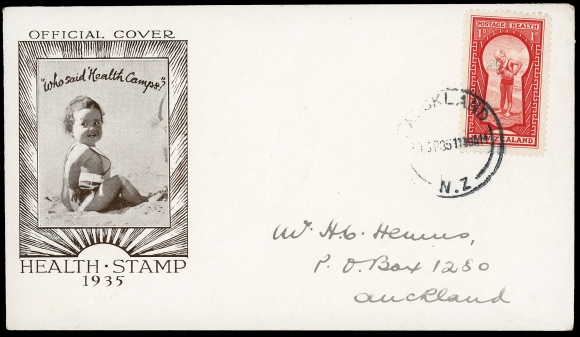 OFFICIAL COVER
"Who said 'Health Camps'?"
HEALTH · STAMP
1935
POSTAGE HEALTH
1D 1D
ZEALAND
AUCKLAND
N.Z
Mr H.C. Hemus,
P. O. Box 1280
Auckland